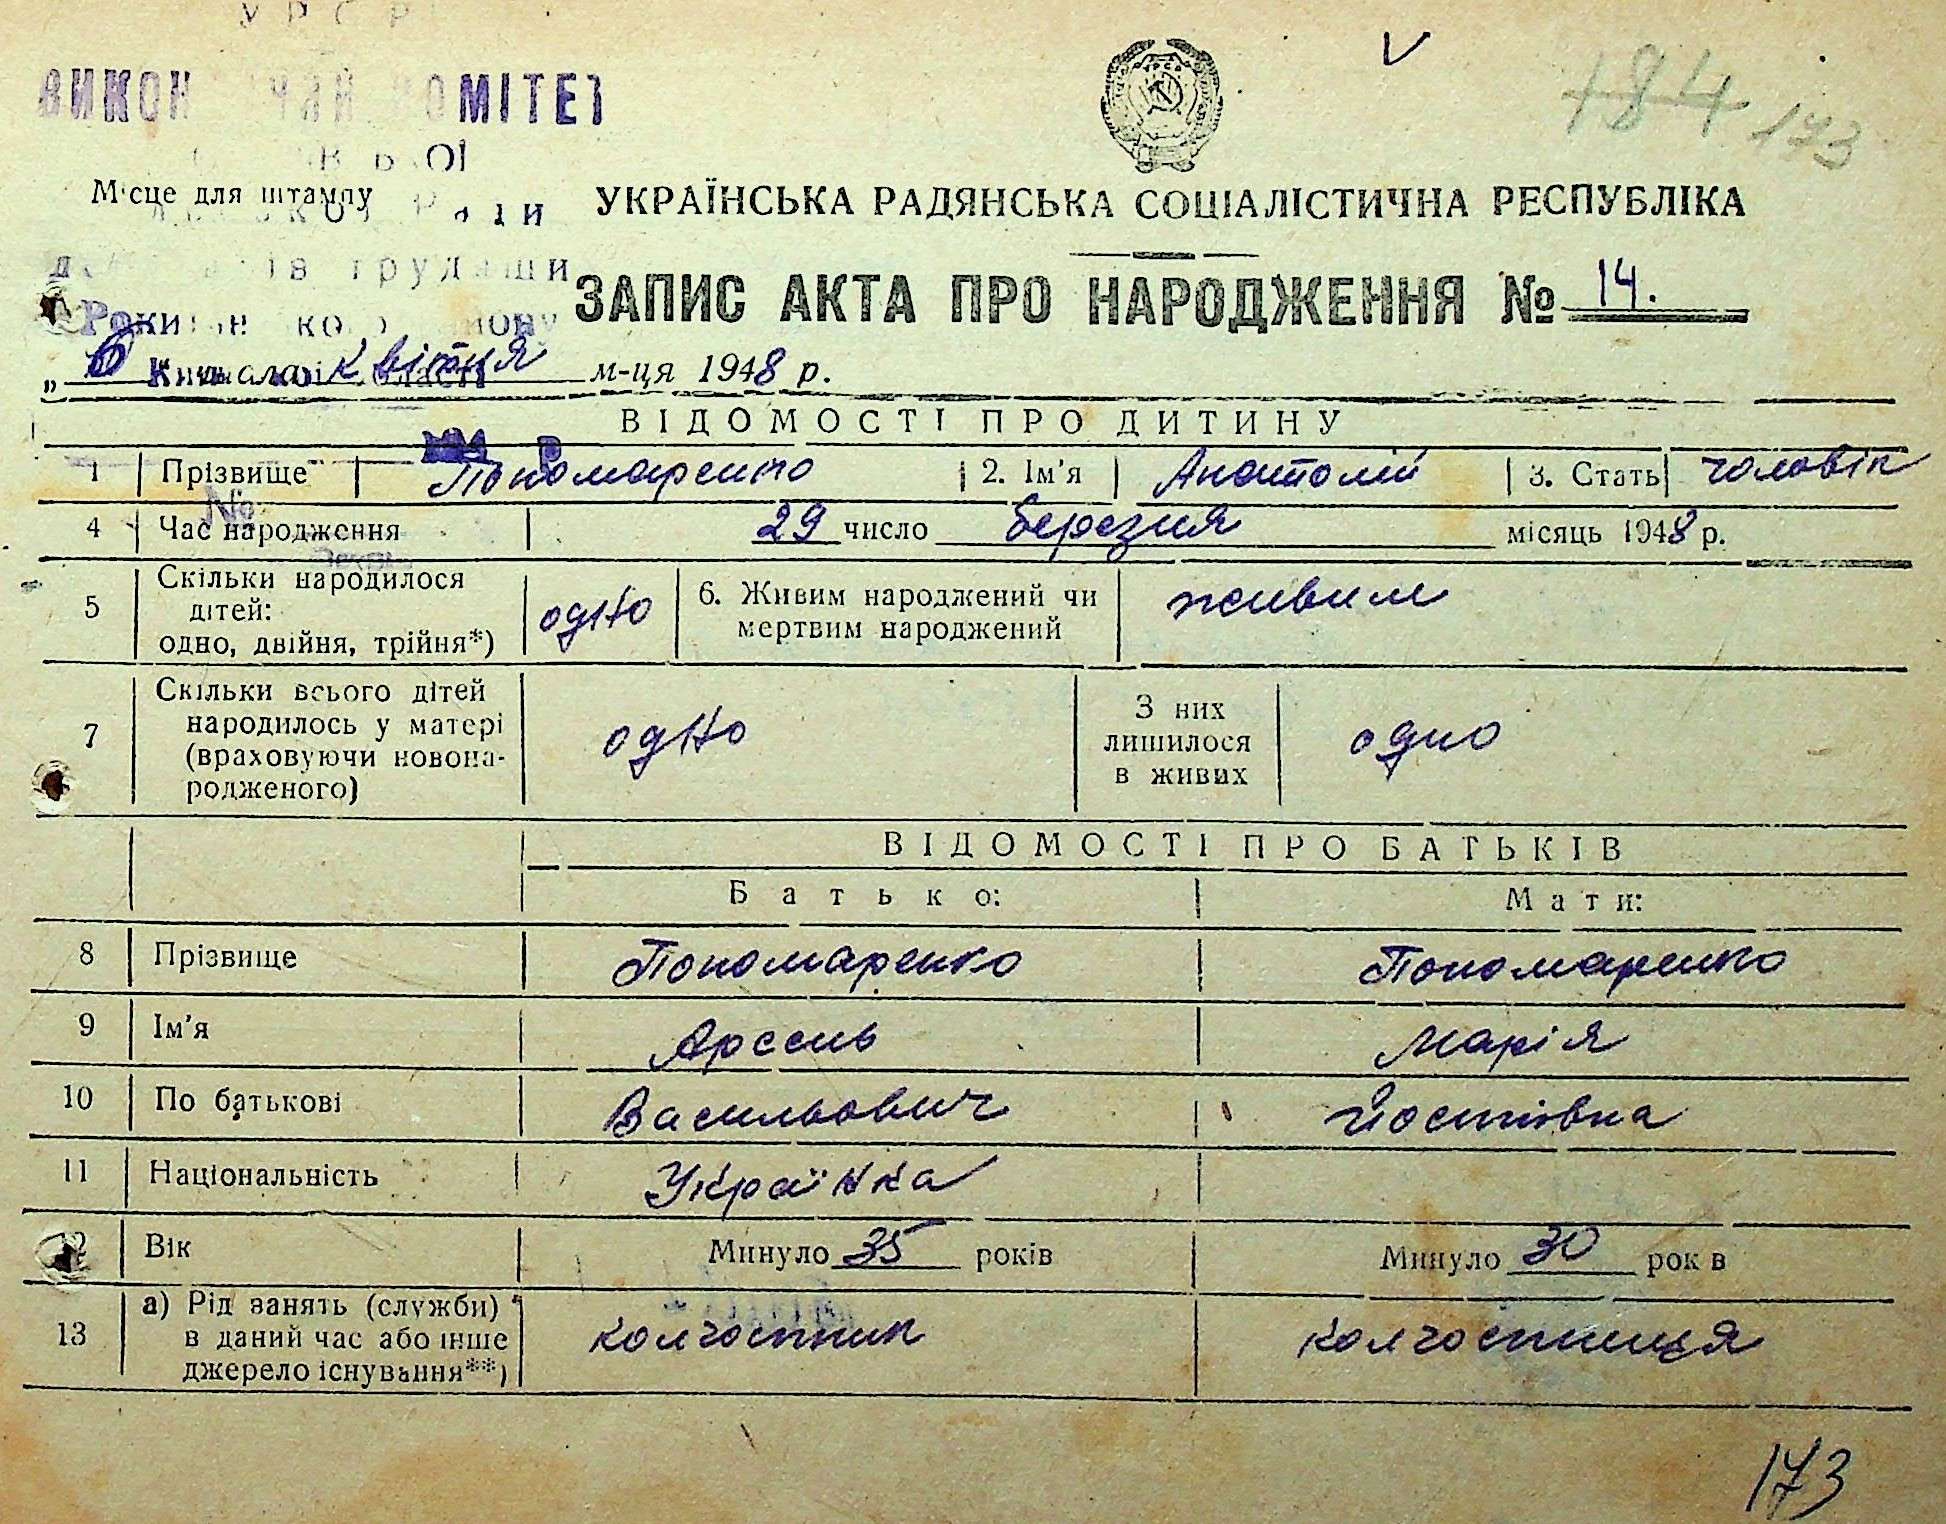 УРСР
ВИКОН ЧИЙ КОМІТЕТ
184 173
Місце для штампу
УКРАЇНСЬКА РАДЯНСЬКА СОЦІАЛІСТИЧНА РЕСПУБЛІКА
ЗАПИС АКТА ПРО НАРОДЖЕННЯ № 14.
„ 6 квітня м-ця 1948 р.
ВІДОМОСТІ ПРО ДИТИНУ
1 Прізвище Пономаренко 2. Ім'я Анатолій 3. Стать чоловік
4 Час народження 29 число березня місяць 1948 р.
5 Скільки народилося дітей: одно, двійня, трійня*) одно 6. Живим народжений чи мертвим народжений живим
7 Скільки всього дітей народилось у матері (враховуючи новонародженого) одно З них лишилося в живих одно
ВІДОМОСТІ ПРО БАТЬКІВ
Батько: Мати:
8 Прізвище Пономаренко Пономаренко
9 Ім'я Арсень Марія
10 По батькові Васильович Йостівна
11 Національність Українка
12 Вік Минуло 35 років Минуло 30 рок в
13 а) Рід занять (служби) в даний час або інше джерело існування**) колгоспник колгоспниця
173